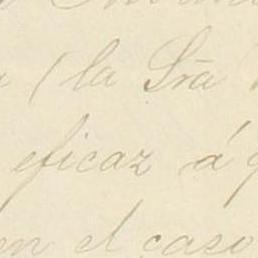 (la Sra
eficaz á
en el caso